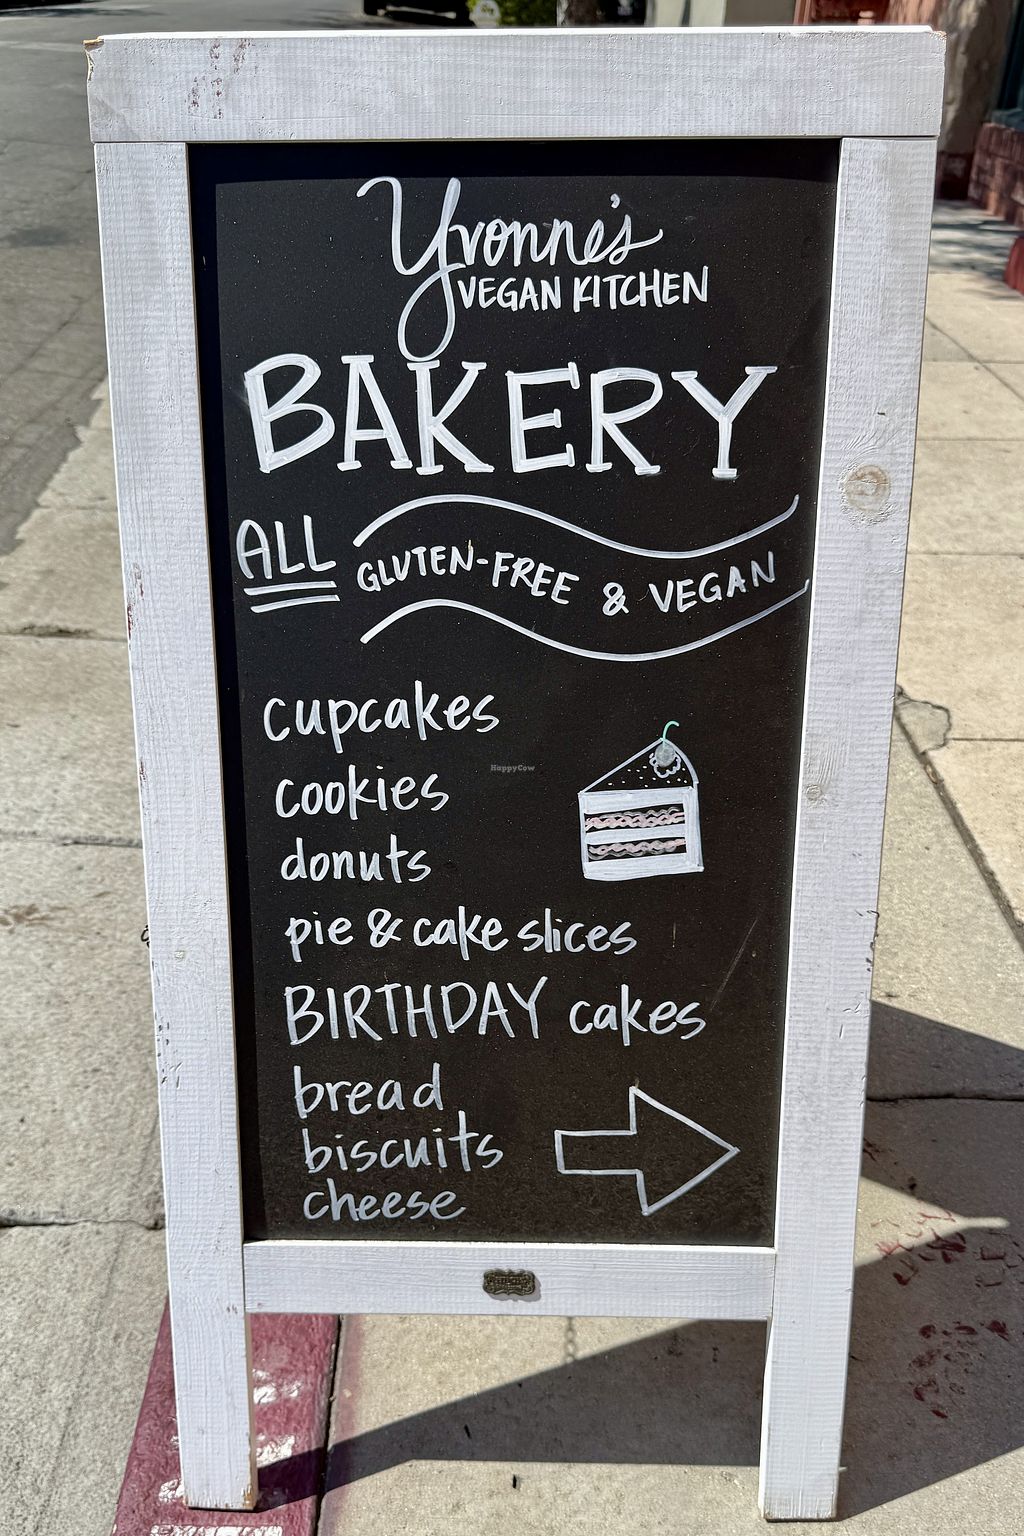 Yvonne's
VEGAN KITCHEN
BAKERY
ALL GLUTEN-FREE & VEGAN
cupcakes
HappyCow
cookies
donuts
pie & cake slices
BIRTHDAY cakes
bread
biscuits
cheese